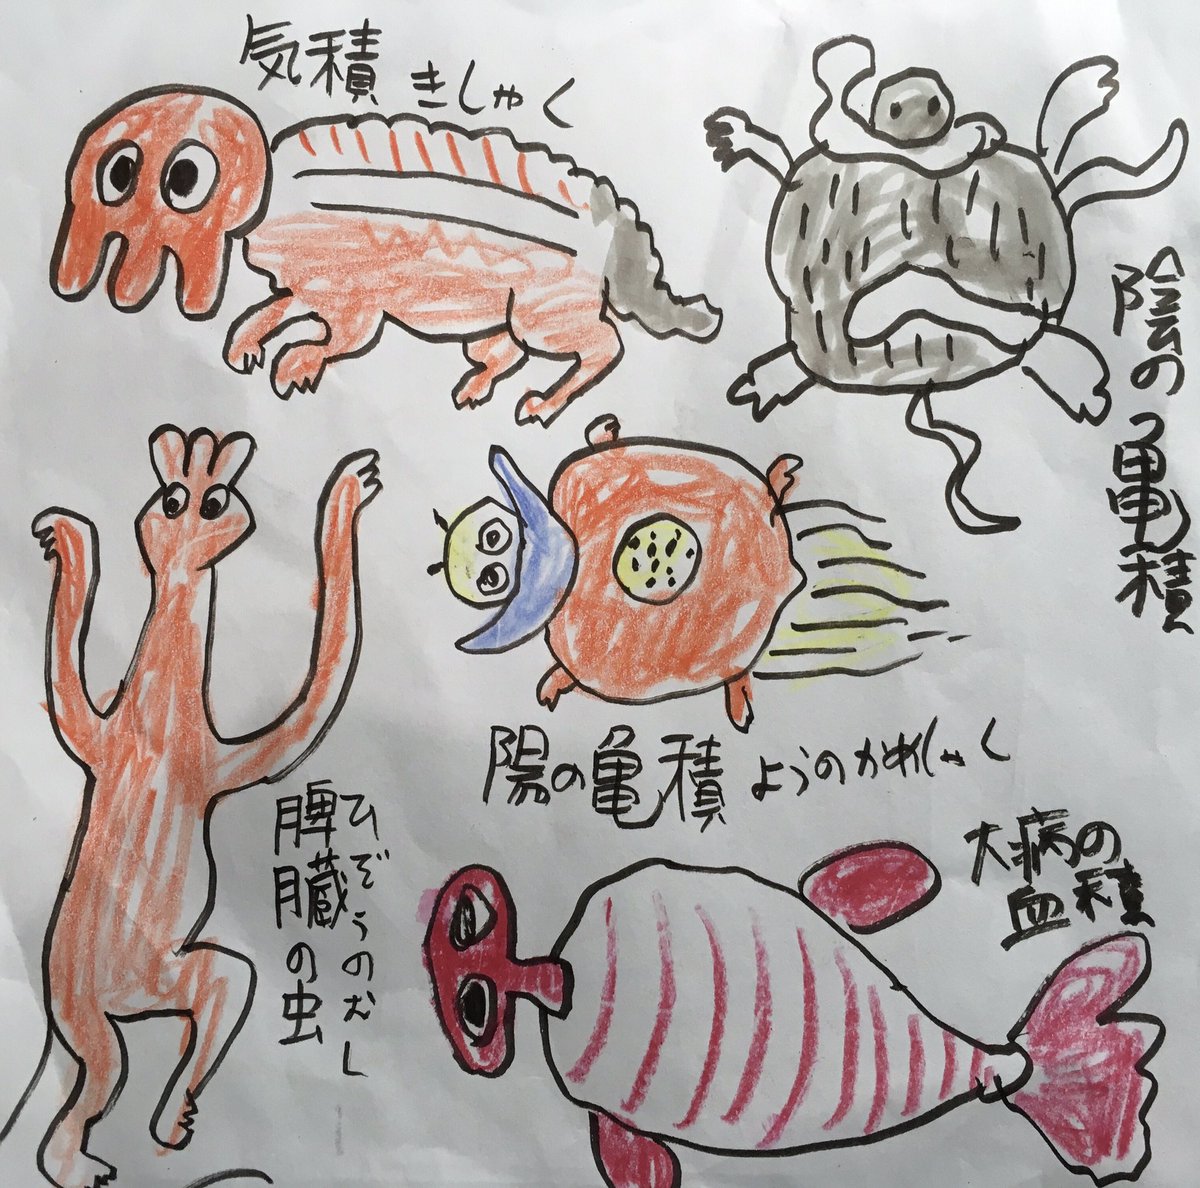 気積 きしゃく
陰の亀積
陽の亀積 ようのかめしゃく
脾臓の虫
ひぞうのむし
大病の
血積